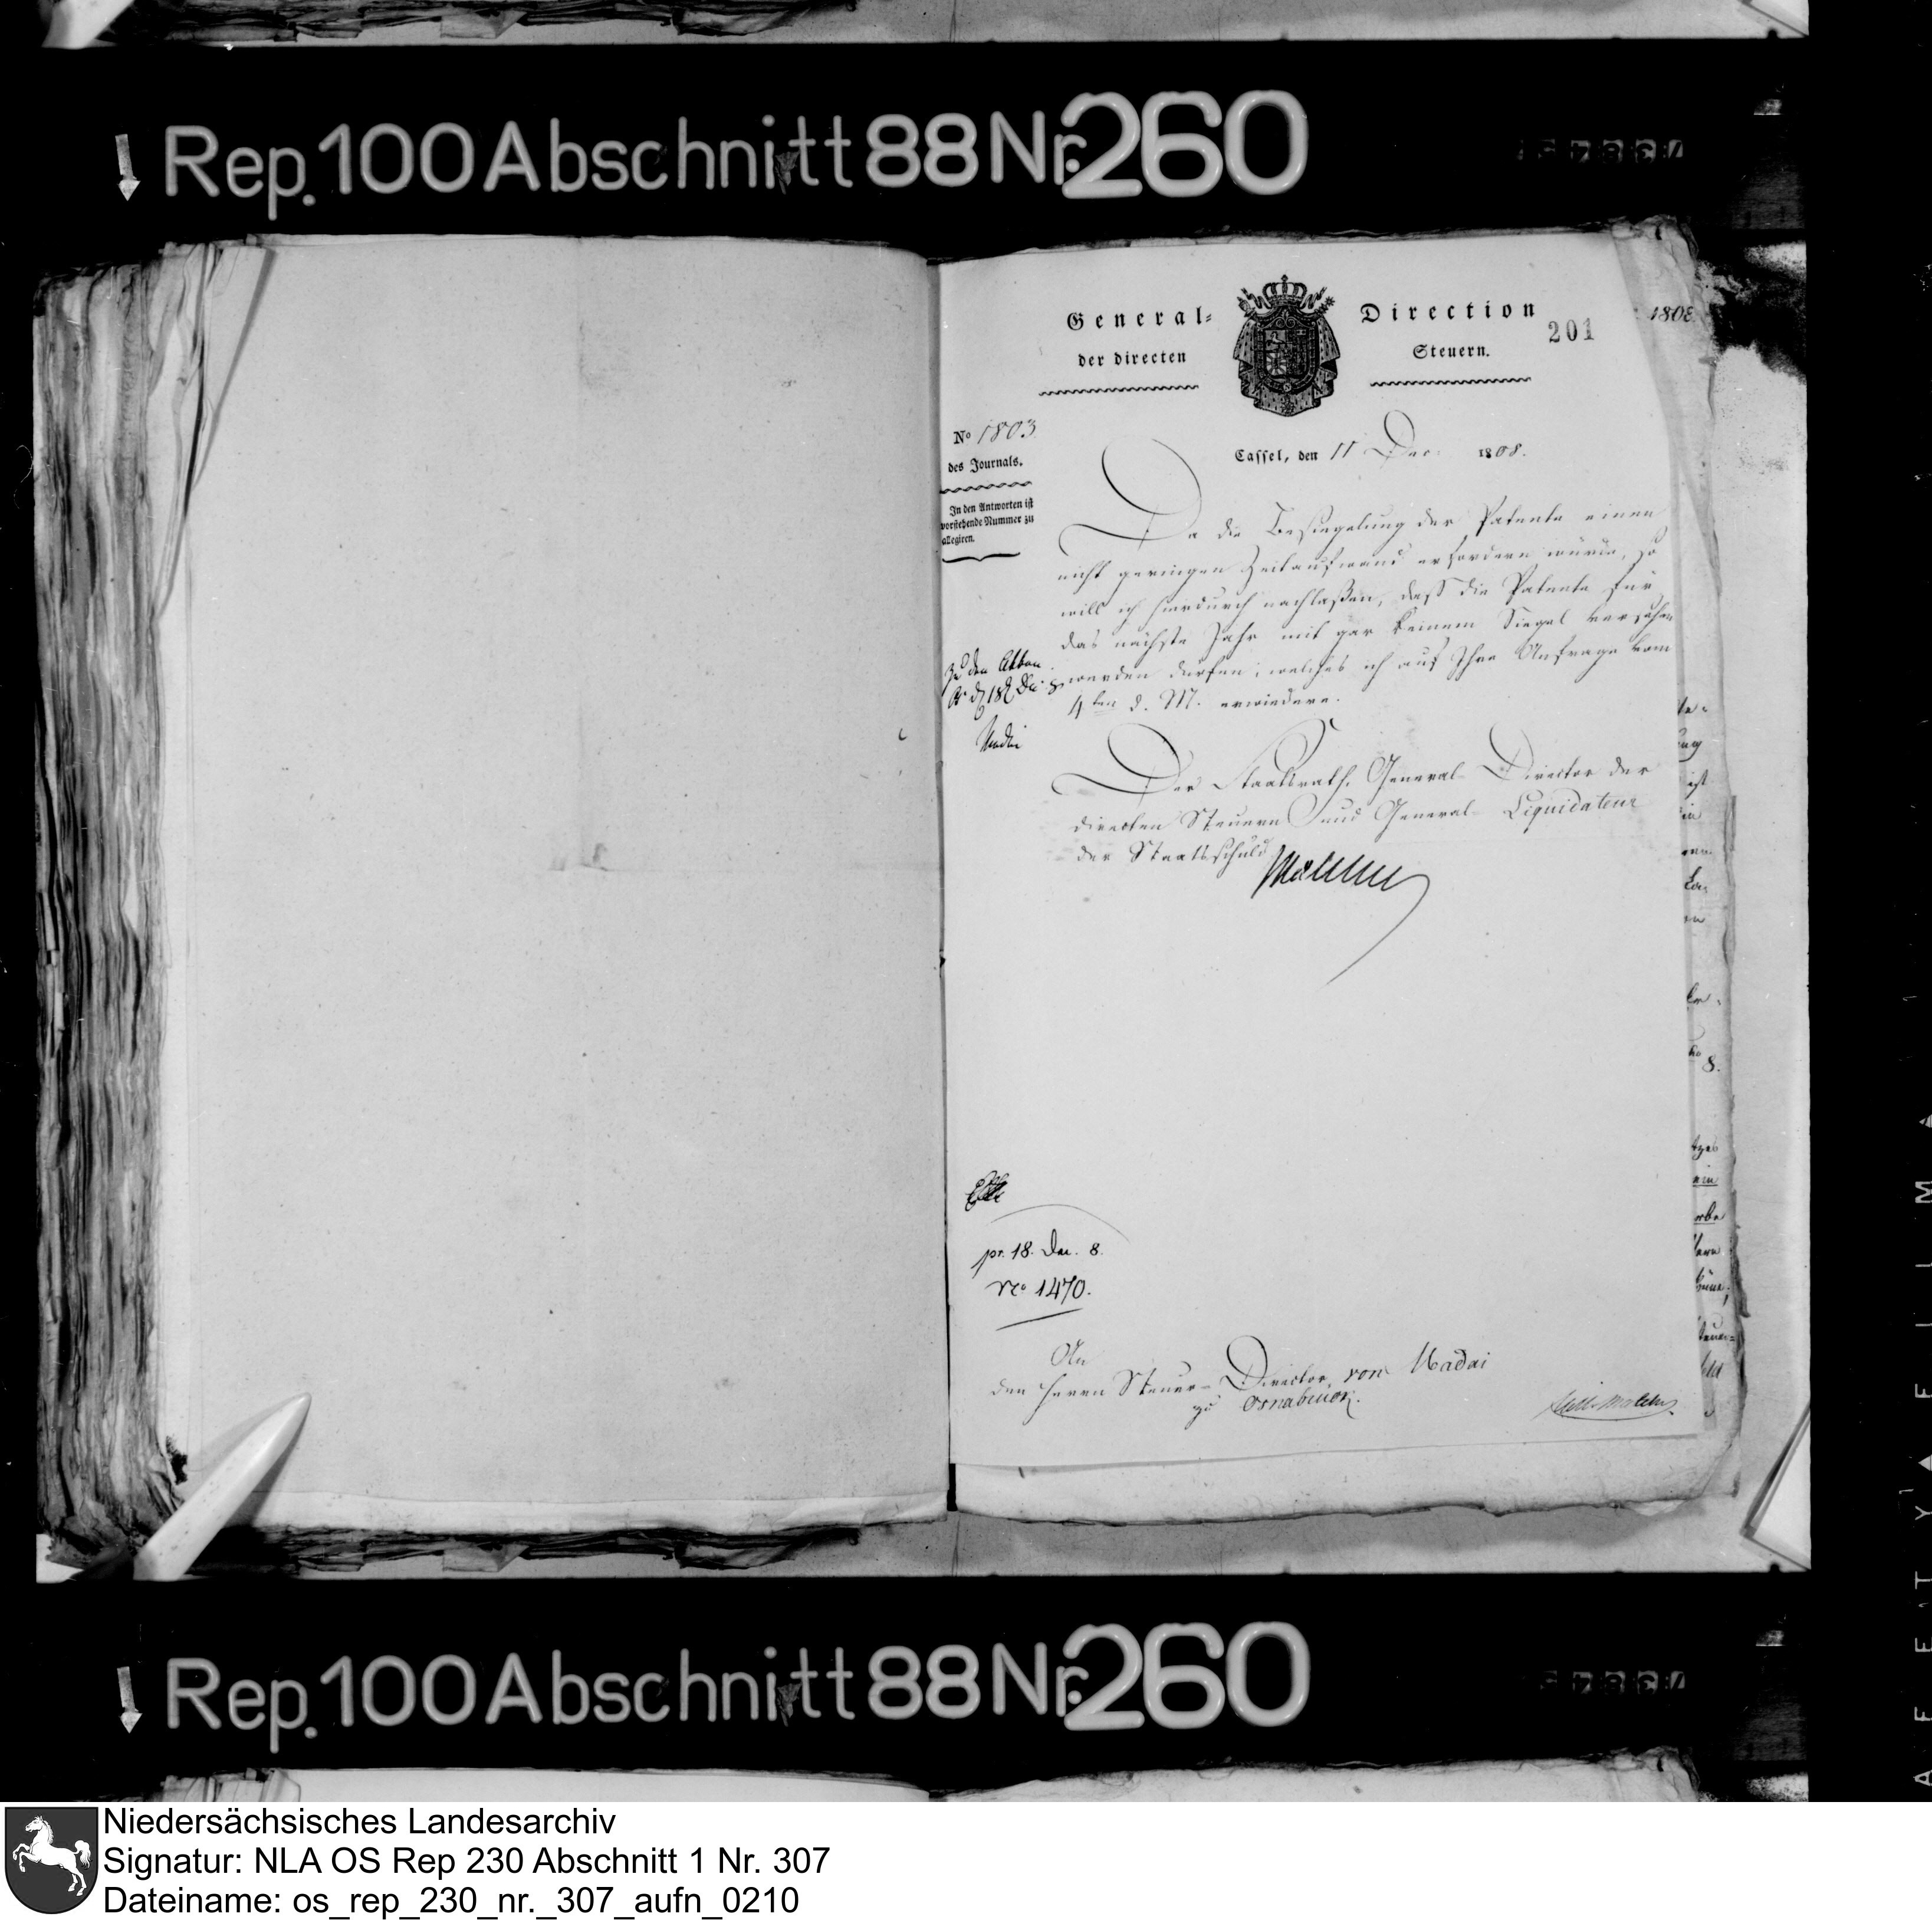 Rep. 100 Abschnitt 88 Nr. 260
General- Direction
201
1808
der directen Steuern.
No 1803
des Journals.
In den Antworten ist
vorstehende Nummer zu
allegiren.
Cassel, den 11 Dec. 1808.
Da die Besiegelung der Patente einen
nicht geringen Zeitaufwand erfordern würde, so
will ich hierdurch nachlaßen, daß die Patente für
das nächste Jahr mit gar keinem Siegel versehen
werden dürfen; welches ich auf Ihre Anfrage vom
4ten d. M. erwiedere.
Zu den Akten
d 18 Dec. 8
Madai
Der Staatsrath, General-Director der
directen Steuern und General-Liquidateur
der Staatsschuld
Malchus
pr. 18. Dec. 8.
No 1470.
An
den Herrn Steuer-Director von Madai
zu Osnabrück.
Rep. 100 Abschnitt 88 Nr. 260
Niedersächsisches Landesarchiv
Signatur: NLA OS Rep 230 Abschnitt 1 Nr. 307
Dateiname: os_rep_230_nr._307_aufn_0210